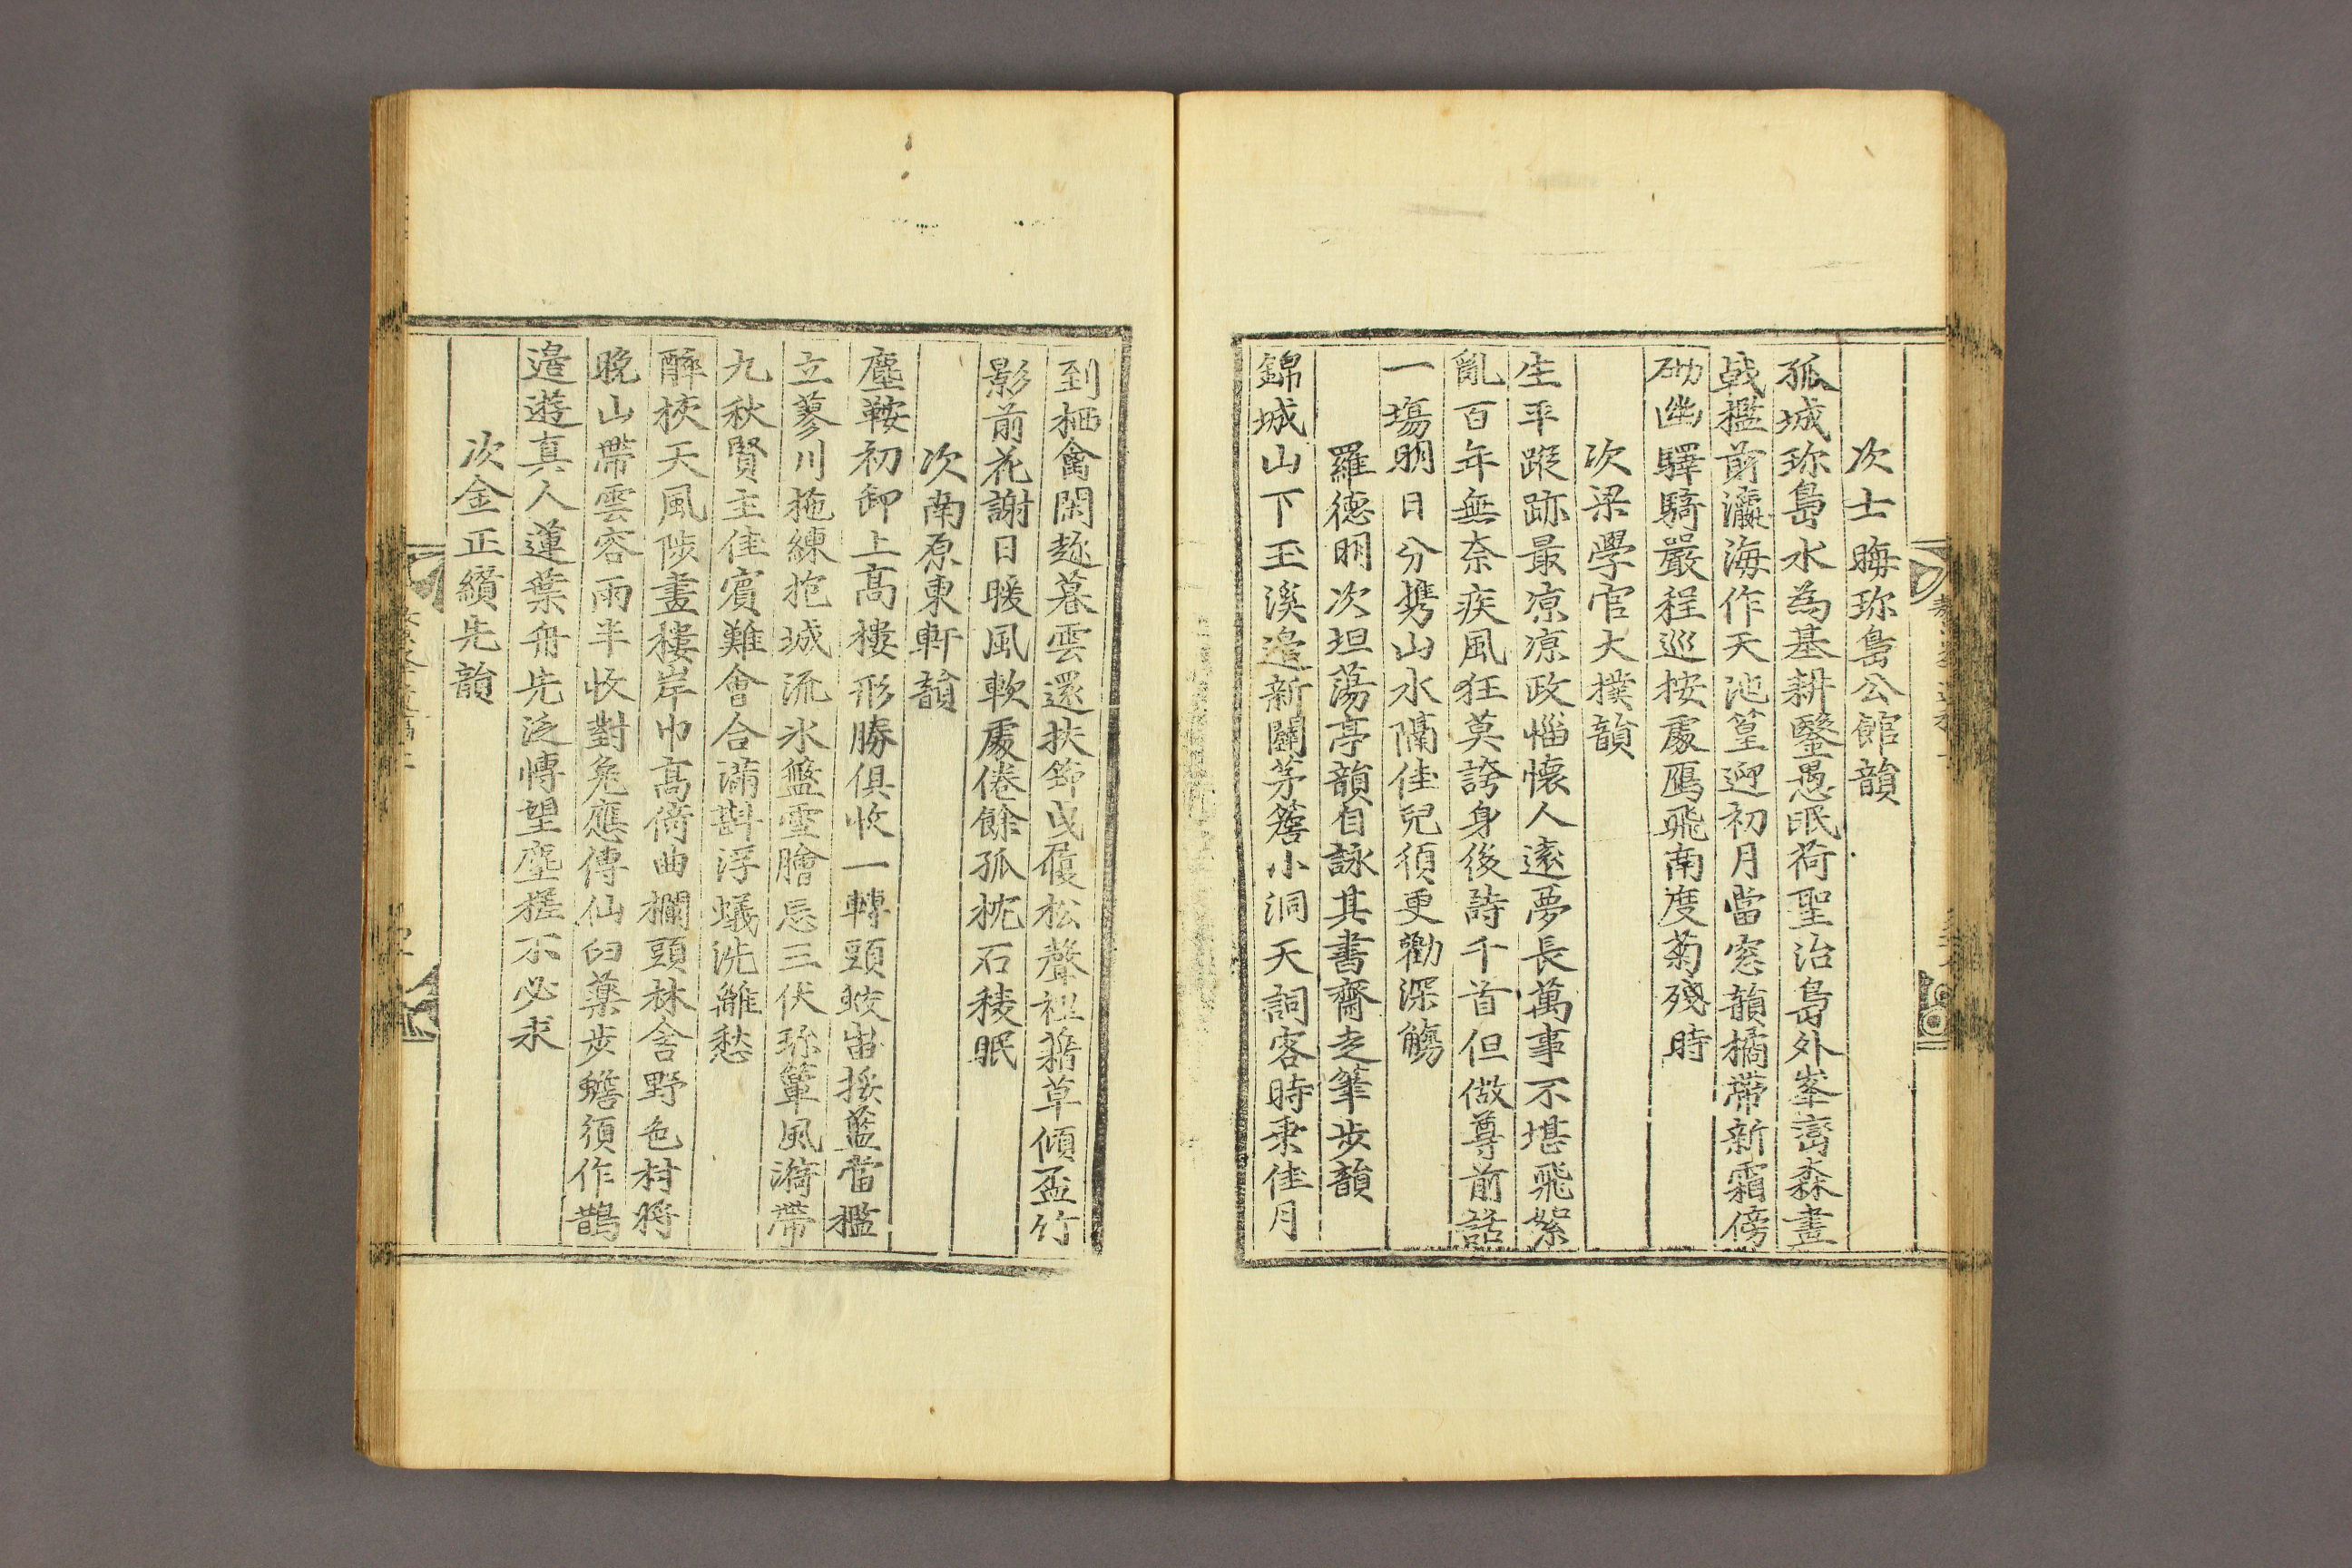 次士晦珎島公館韻
孤城珎島水為基耕鑿愚氓荷聖治島外峯巒森畫
戟檻前瀛海作天池篁迎初月當窓韻橘帶新霜傍
砌幽驛騎嚴程巡按處鴈飛南度菊殘時
次梁學官大撲韻
生平蹤跡最凉凉政惱懷人遠夢長萬事不堪飛絮
亂百年無奈疾風狂莫誇身後詩千首但做尊前話
一塲明日分携山水隔佳兒須更勸深觴
羅德明次坦蕩亭韻自詠其書齋走筆步韻
錦城山下玉溪邉新闢茅簷小洞天詞客時乘佳月
到栖禽閑趂暮雲還扶筇曳履松聲裡藉草傾盃竹
影前花謝日暖風軟處倦餘孤枕石稜眠
次南原東軒韻
塵鞍初卸上高樓形勝俱收一轉頭蛟峀挼藍當檻
立蓼川拖練抱城流氷盤雪膾忘三伏珎簟風漪帶
九秋賢主佳賓難會合滿斟浮蟻洗離愁
醉挾天風陟畫樓岸巾高倚曲欄頭林含野色村將
晚山帶雲容雨半收對兔應傳仙臼藥步蟾須作鵲
邉遊真人蓮葉舟先泛博望塵槎不必求
次金正纘先韻